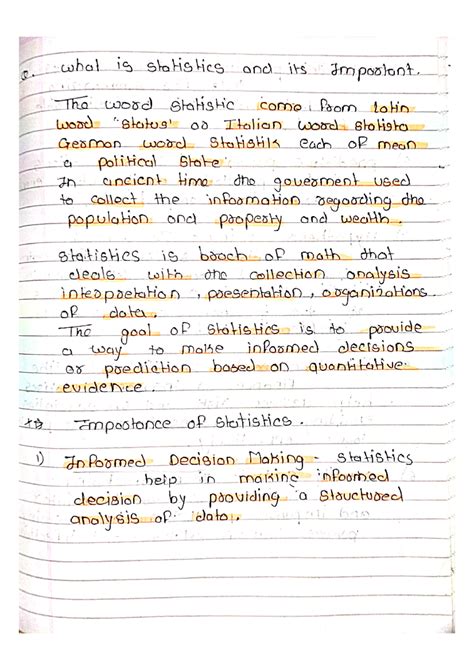 Q. what is statistics and its Impostant.
The word statistic come from latin
word "status" or Italian word statista
German word statistik each of mean
a political state
In ancient time the goverment used
to collect the information regarding the
population and property and wealth.
statistics is brach of math that
deals with the collection analysis
interpretation, presentation, organizations
of data.
The goal of statistics is to provide
a way to make informed decisions
or prediction based on quantitative
evidence.
Importance of statistics.
1) Informed Decision Making - statistics
help in making informed
decision by providing a structured
analysis of data.